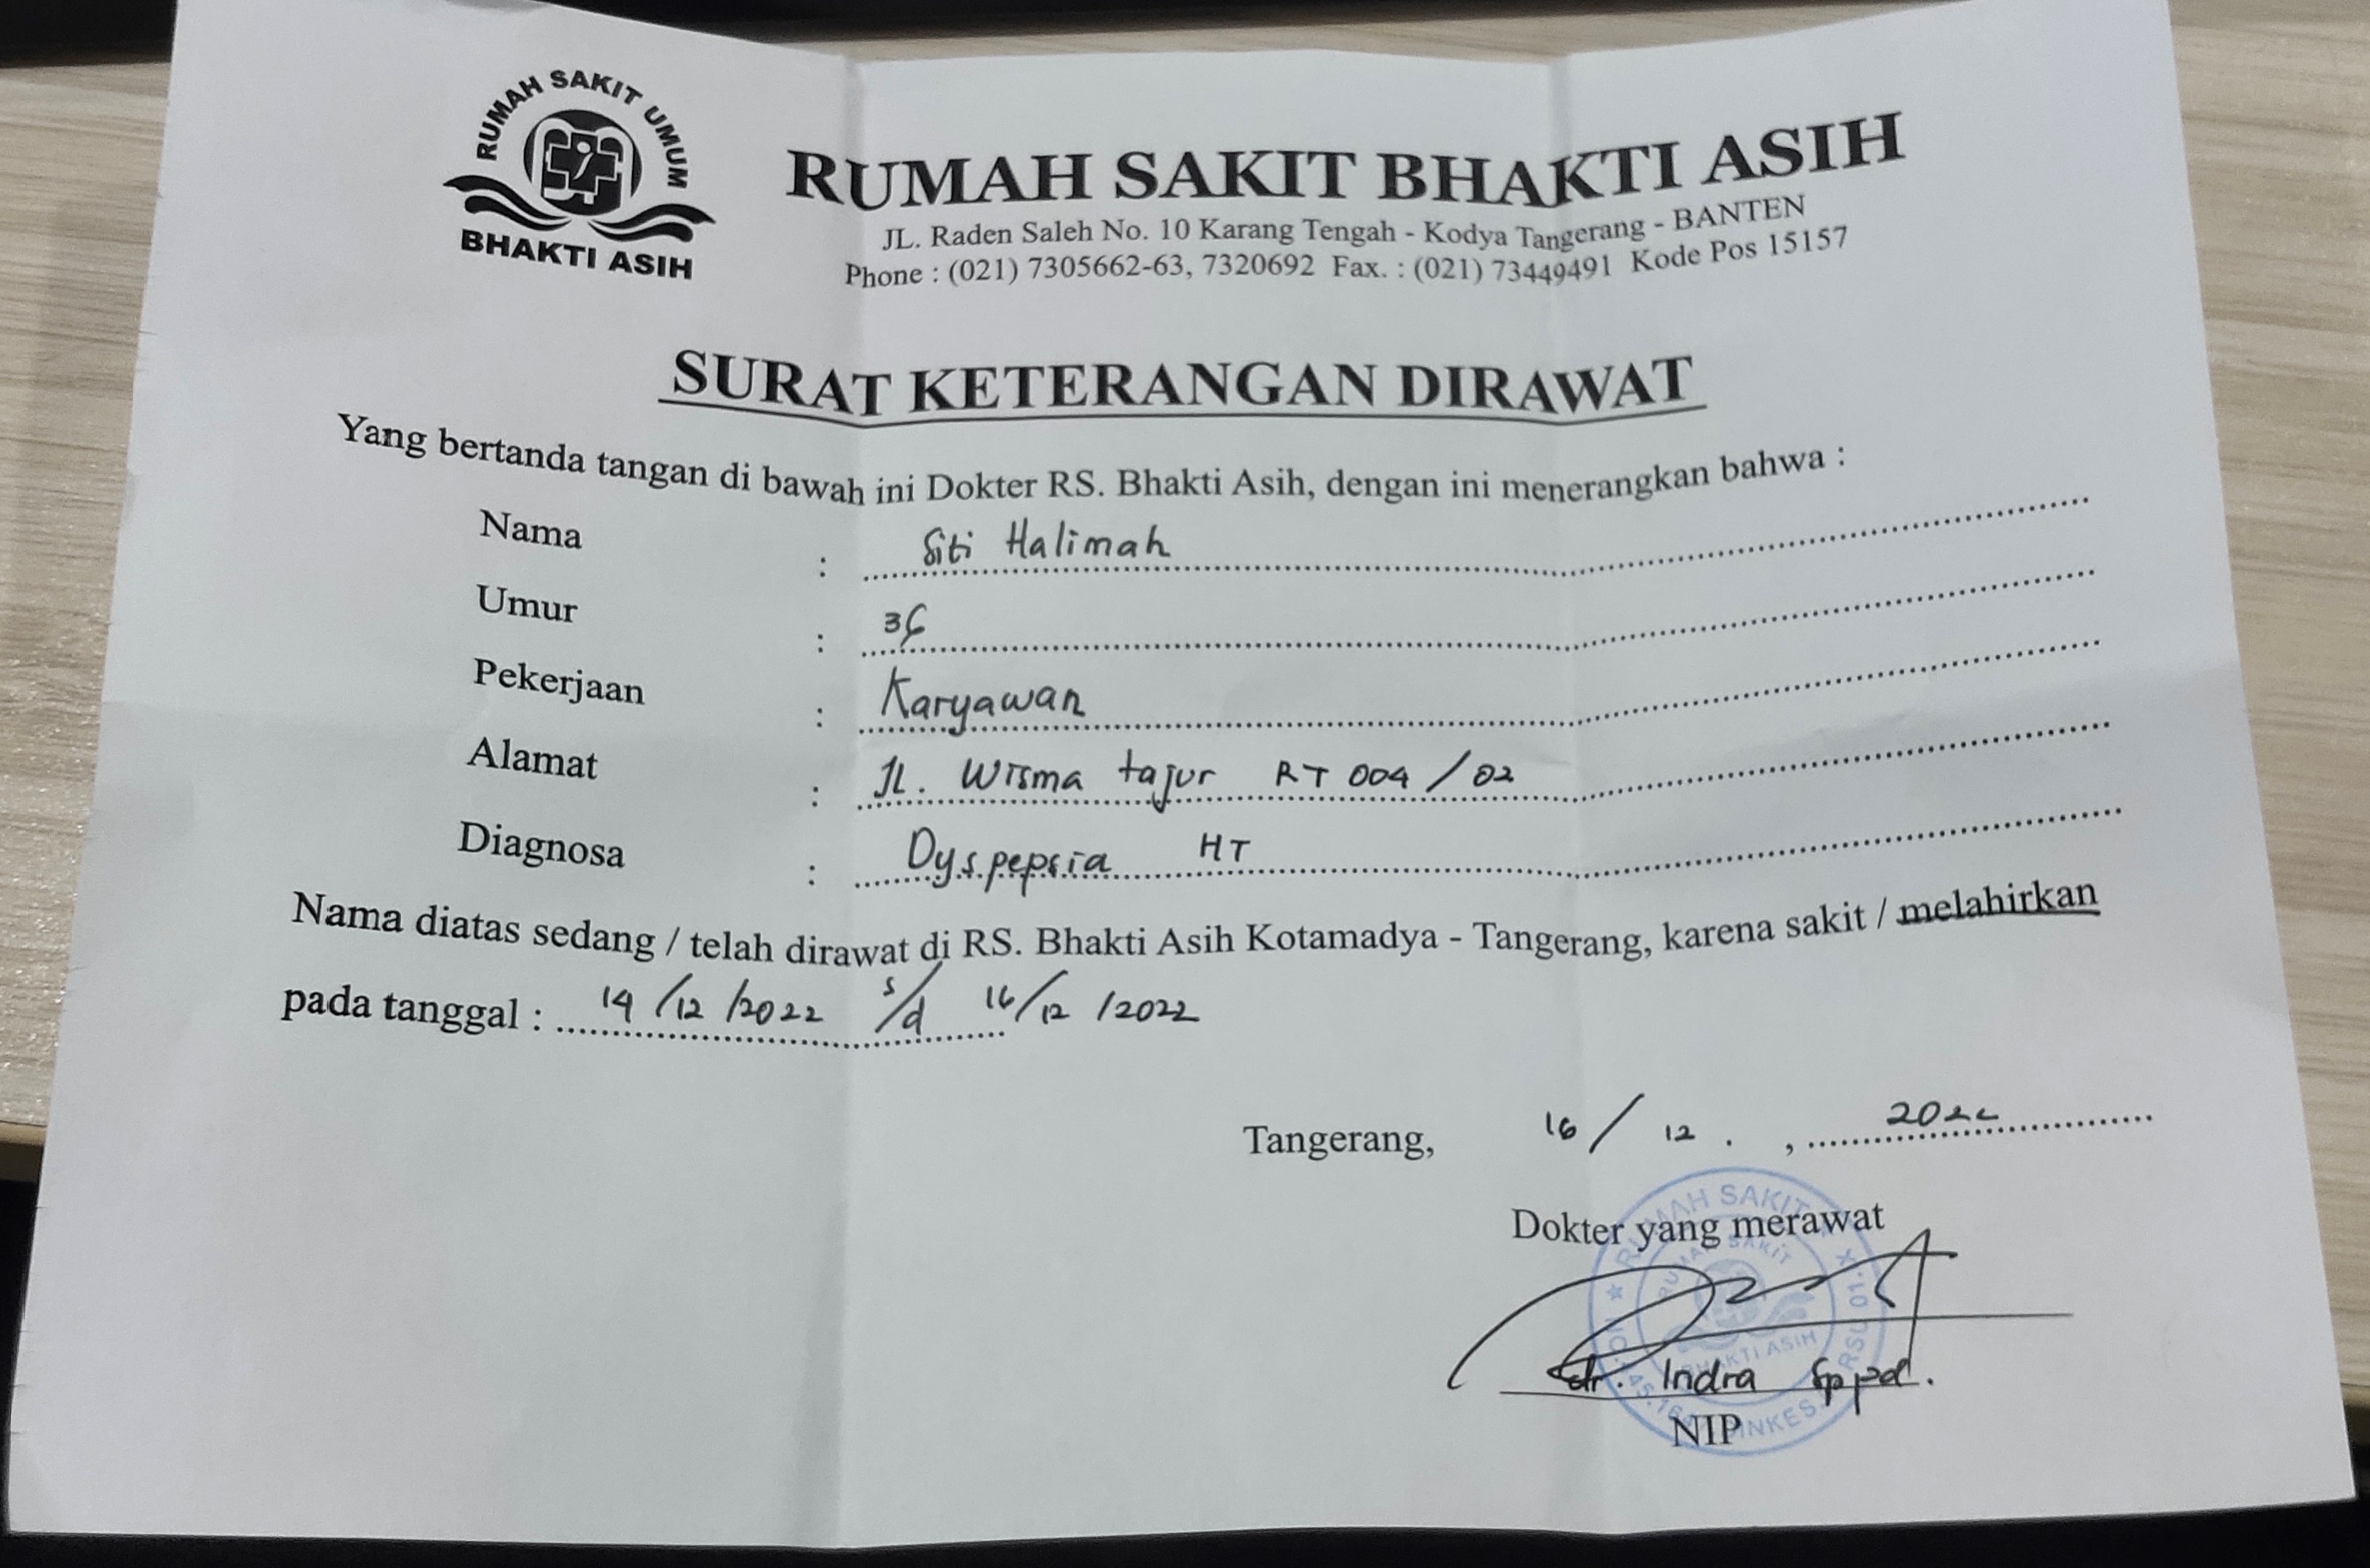 RUMAH SAKIT UMUM
BHAKTI ASIH
RUMAH SAKIT BHAKTI ASIH
JL. Raden Saleh No. 10 Karang Tengah - Kodya Tangerang - BANTEN
Phone : (021) 7305662-63, 7320692 Fax. : (021) 73449491 Kode Pos 15157
SURAT KETERANGAN DIRAWAT
Yang bertanda tangan di bawah ini Dokter RS. Bhakti Asih, dengan ini menerangkan bahwa :
Nama : Siti Halimah
Umur : 36
Pekerjaan : Karyawan
Alamat : JL. Wisma tajur RT 004 / 02
Diagnosa : Dyspepsia HT
Nama diatas sedang / telah dirawat di RS. Bhakti Asih Kotamadya - Tangerang, karena sakit / melahirkan
pada tanggal : 14 /12 /2022 s/d 16/12 /2022
Tangerang, 16/ 12 . , 2022
Dokter yang merawat
dr. Indra Sppd.
NIP